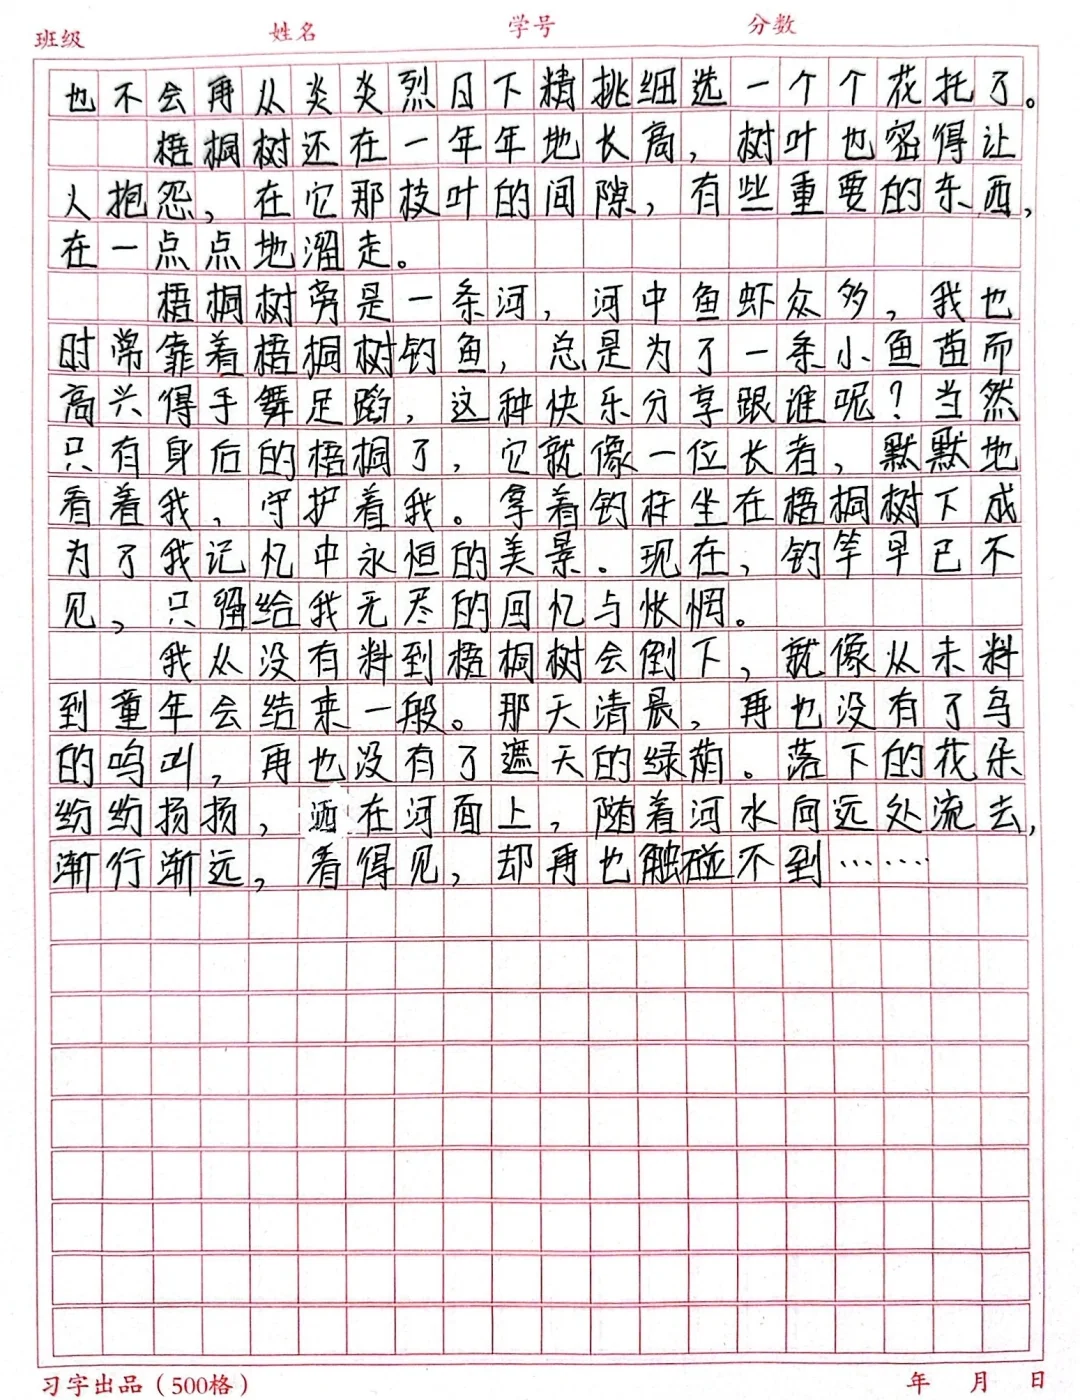 班级 姓名 学号 分数
也不会再从炎炎烈日下精挑细选一个个花托了。
梧桐树还在一年年地长高，树叶也密得让
人抱怨，在它那枝叶的间隙，有些重要的东西，
在一点点地溜走。
梧桐树旁是一条河，河中鱼虾众多，我也
时常靠着梧桐树钓鱼，总是为了一条小鱼苗而
高兴得手舞足蹈，这种快乐分享跟谁呢？当然
只有身后的梧桐了，它就像一位长者，默默地
看着我，守护着我。拿着钓杆坐在梧桐树下成
为了我记忆中永恒的美景。现在，钓竿早已不
见，只留给我无尽的回忆与怅惘。
我从没有料到梧桐树会倒下，就像从未料
到童年会结束一般。那天清晨，再也没有了鸟
的鸣叫，再也没有了遮天的绿荫。落下的花朵
纷纷扬扬，洒在河面上，随着河水向远处流去，
渐行渐远，看得见，却再也触碰不到……
习字出品（500格） 年 月 日